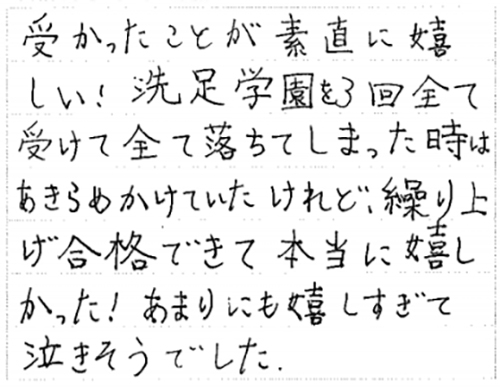 受かったことが素直に嬉
しい!洗足学園を3回全て
受けて全て落ちてしまった時は
あきらめかけていたけれど、繰り上
げ合格できて本当に嬉し
かった!あまりにも嬉しすぎて
泣きそうでした.